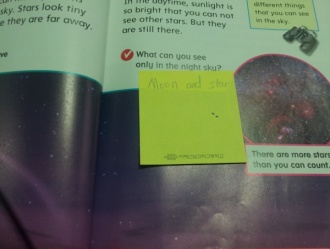 sky. Stars look tiny
e they are far away.
ve
In the daytime, sunlight is
so bright that you can not
see other stars. But they
are still there.
What can you see
only in the night sky?
Moon and star
different things
that you can see
in the sky.
There are more stars
than you can count.